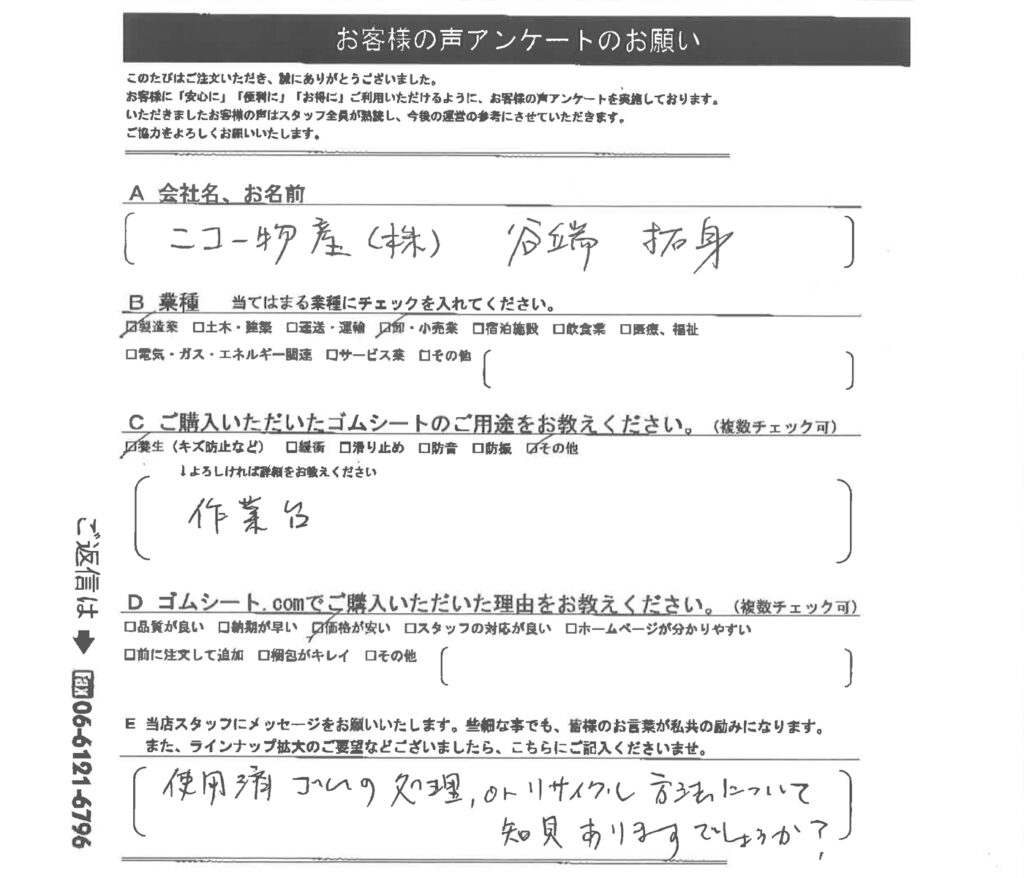 お客様の声アンケートのお願い
このたびはご注文いただき、誠にありがとうございました。
お客様に「安心に」「便利に」「お得に」ご利用いただけるように、お客様の声アンケートを実施しております。
いただきましたお客様の声はスタッフ全員が熟読し、今後の運営の参考にさせていただきます。
ご協力をよろしくお願いいたします。
A 会社名、お名前
ニコー物産(株) 谷端 拓身
B 業種 当てはまる業種にチェックを入れてください。
☑製造業 □土木・建築 □運送・運輸 ☑卸・小売業 □宿泊施設 □飲食業 □医療、福祉
□電気・ガス・エネルギー関連 □サービス業 □その他
C ご購入いただいたゴムシートのご用途をお教えください。(複数チェック可)
☑養生(キズ防止など) □緩衝 □滑り止め □防音 □防振 ☑その他
↓よろしければ詳細をお教えください
作業台
D ゴムシート.comでご購入いただいた理由をお教えください。(複数チェック可)
□品質が良い □納期が早い ☑価格が安い □スタッフの対応が良い □ホームページが分かりやすい
□前に注文して追加 □梱包がキレイ □その他
E 当店スタッフにメッセージをお願いいたします。些細な事でも、皆様のお言葉が私共の励みになります。
また、ラインナップ拡大のご要望などございましたら、こちらにご記入くださいませ。
使用済ゴムの処理, orリサイクル方法について
知見ありますでしょうか?
ご返信は➡fax06-6121-6796